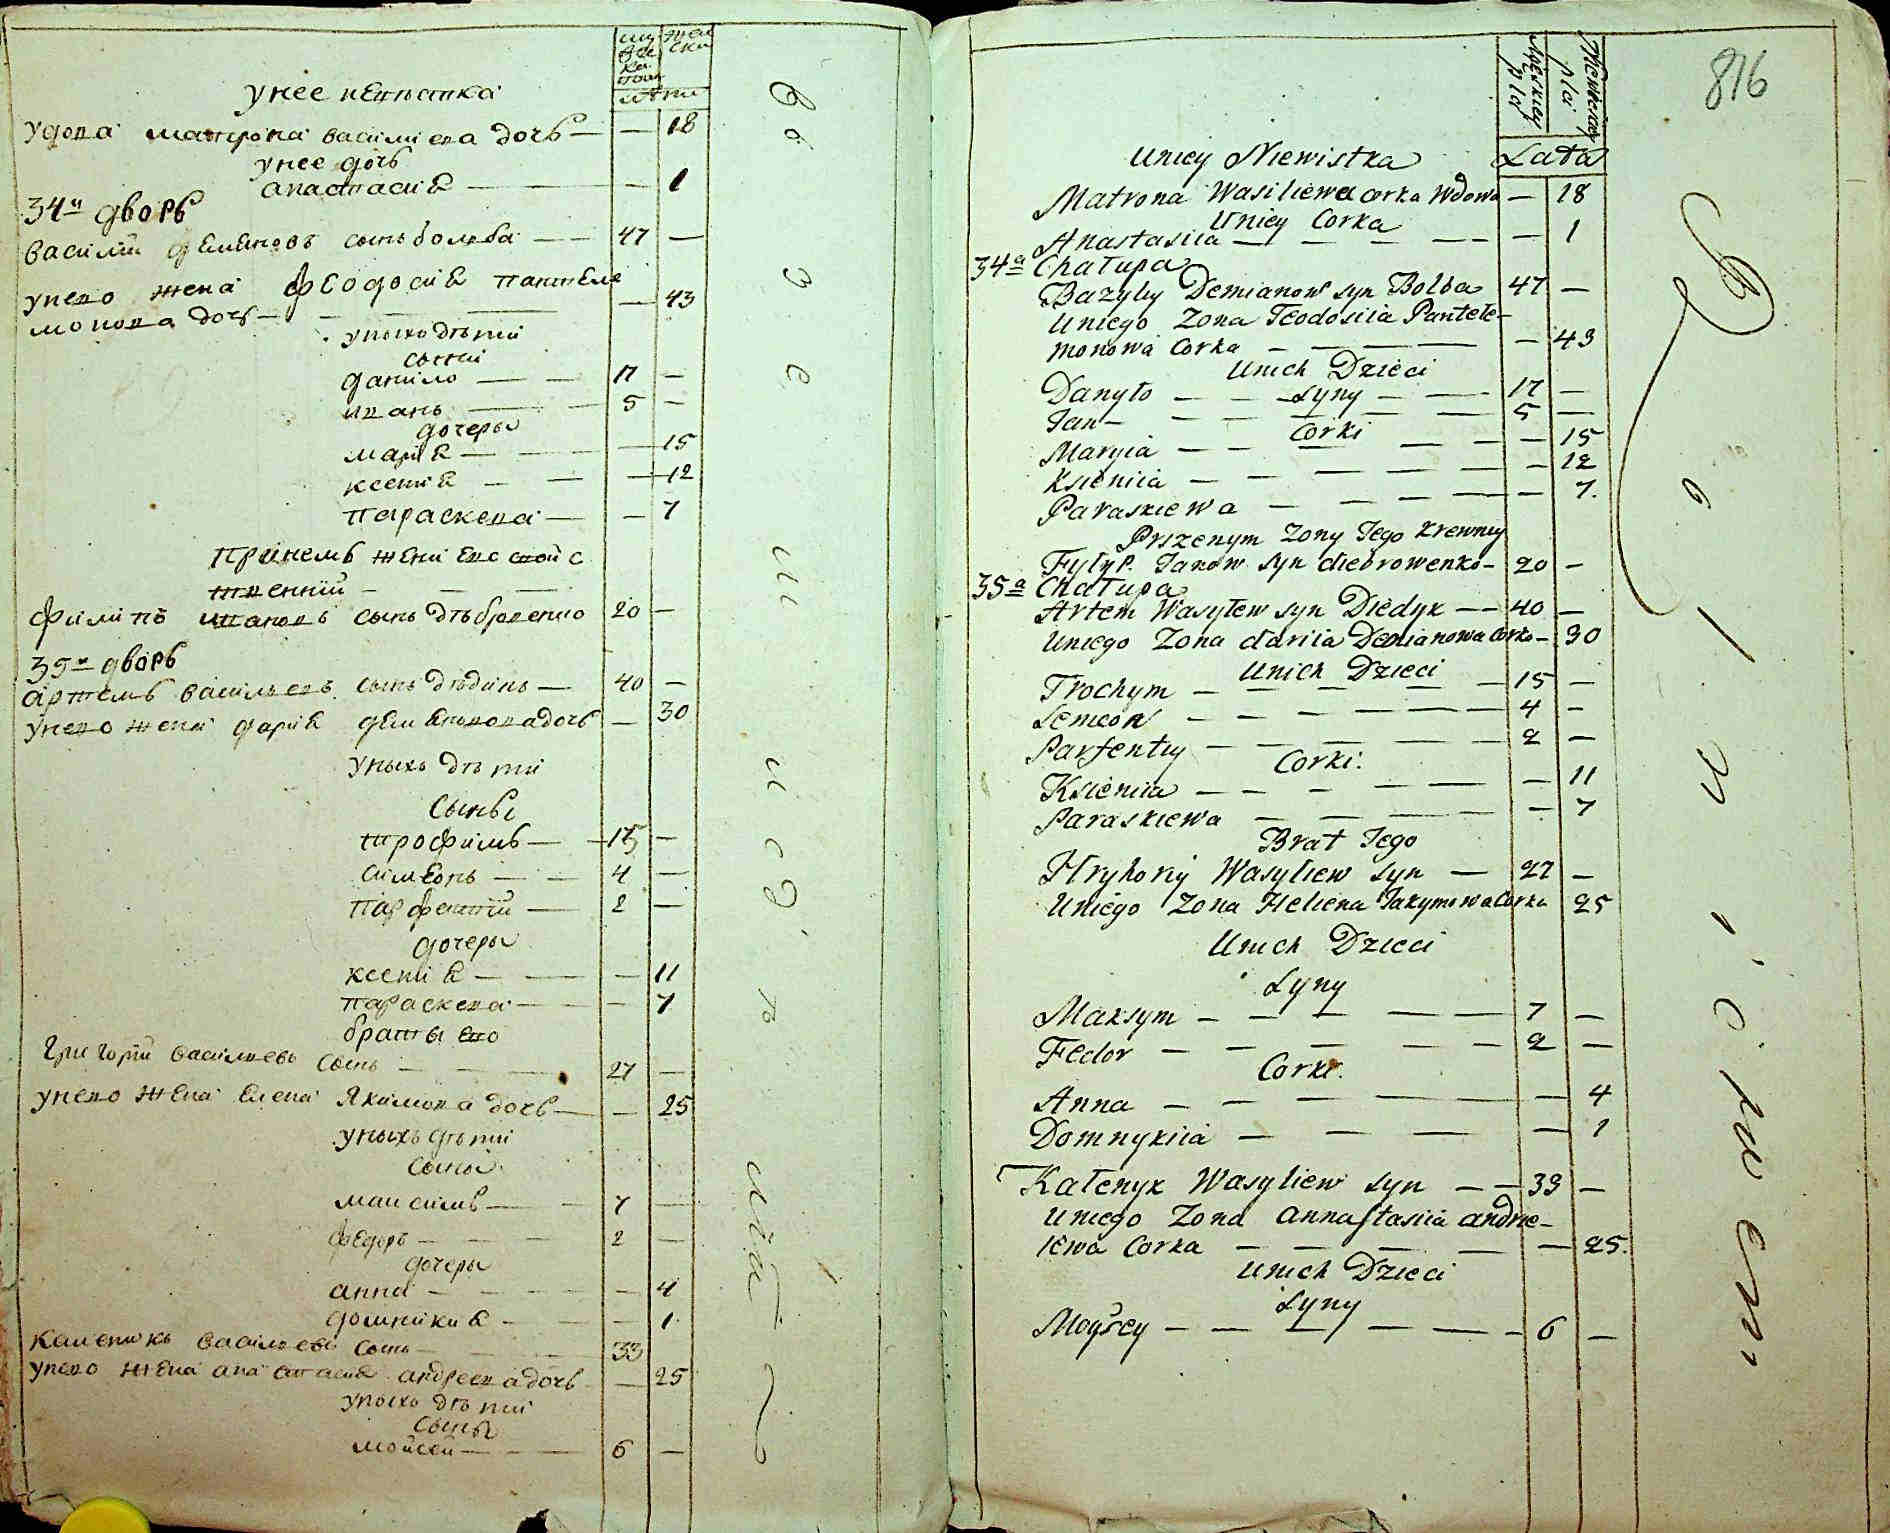 мужеска полу
женска
лѣта
унее невѣстка
удова матрона василиева дочь — — 18
унее дочь
анастасия — — 1
34й дворъ
василий демяновъ сынъ болба — — 47 —
унево жена феодосия пантеле
монова дочь — — — 43
уныхъ дѣтий
сыны
данило — — 17 —
иванъ — — 5 —
дочеры
мария — — — 15
ксения — — — 12
параскева — — 7
принемъ жены ево свойс
твенний — — —
филипъ ивановъ сынъ дѣбровенко 20 —
35й дворъ
артемъ васильевъ сынъ дѣдикъ — 40 —
унево жена дария демянова дочь — 30
уныхъ дѣтий
сыны
трофимъ — 15 —
симеонъ — — 4 —
парфентий — 2 —
дочеры
ксения — — — 11
параскева — — 7
браты ево
григорий васильевъ сынъ — — 27 —
унево жена елена якимова дочь — — 25
уныхъ дѣтий
сыны
максимъ — — 7 —
федоръ — — — 2 —
дочеры
анна — — — — 4
домникия — — — 1
каленикъ васильевъ сынъ — — 33
унево жена анастасия андреева дочь — 25
уныхъ дѣтий
сыны
мойсей — — — 6 —
816
Męzkiey płci
Niewieściey płci
Lata
Unicy Niewistka
Matrona Wasiliewa corka Wdowa — 18
Unicy Corka
Anastasiia — — — — — 1
34a Chałupa
Bazyly Demianow syn Bolba 47 —
Uniego Zona Teodosiia Pantele-
monowa Corka — — — — — 43
Unich Dzieci
Syny
Danyło — — — — — 17 —
Jan — — — — — 5 —
Corki
Maryia — — — — — — 15
Ksieniia — — — — — — 12
Paraskiewa — — — — — 7.
Przenym Zony Jego Krewniy
Fylyp Janow syn diebrowenko — 20 —
35a Chałupa
Artem Wasylew syn Diedyk — — 40 —
Uniego Zona dariia Demianowa Corka — 30
Unich Dzieci
Trochym — — — — — 15 —
Semeon — — — — — — 4 —
Parfentiy — — — — — 2 —
Corki.
Ksieniia — — — — — — 11
Paraskiewa — — — — — 7
Brat Jego
Hryhoriy Wasyliew syn — 27 —
Uniego Zona Heliena Jakymowa Corka 25
Unich Dzieci
Syny
Maksym — — — — — 7 —
Fedor — — — — — 2 —
Corki.
Anna — — — — — — 4
Domnykiia — — — — — 1
Kalenyk Wasyliew syn — — 33 —
Uniego Zona annastasiia andrie-
iewa Corka — — — — — 25.
Unich Dzieci
Syny
Moysey — — — — — 6 —